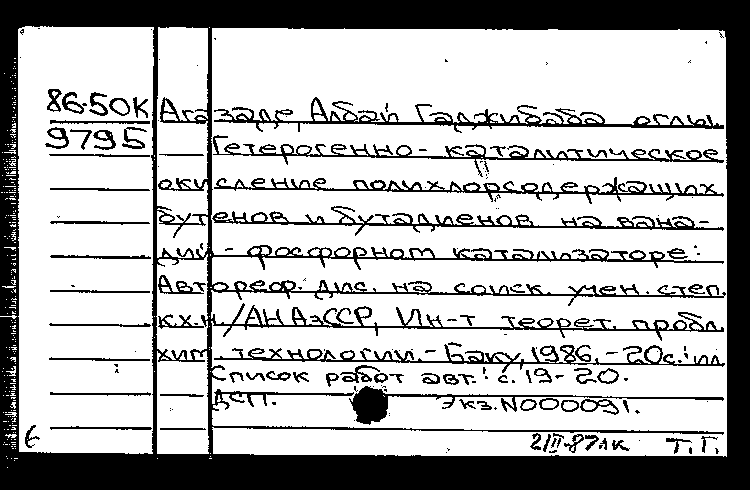 86-50К Агазаде, Албай Гаджибаба оглы.
9795 Гетерогенно-каталитическое
окисление полихлорсодержащих
бутенов и бутадиенов на вана-
дий-фосфорном катализаторе:
Автореф. дис. на соиск. учен. степ.
к.х.н. /АН АзССР, Ин-т теорет. пробл.
хим. технологии.-Баку, 1986.-20с.:ил.
Список работ авт.: с. 19-20.
ДСП. Экз.N000091.
6 2/II-87лк Т.Г.